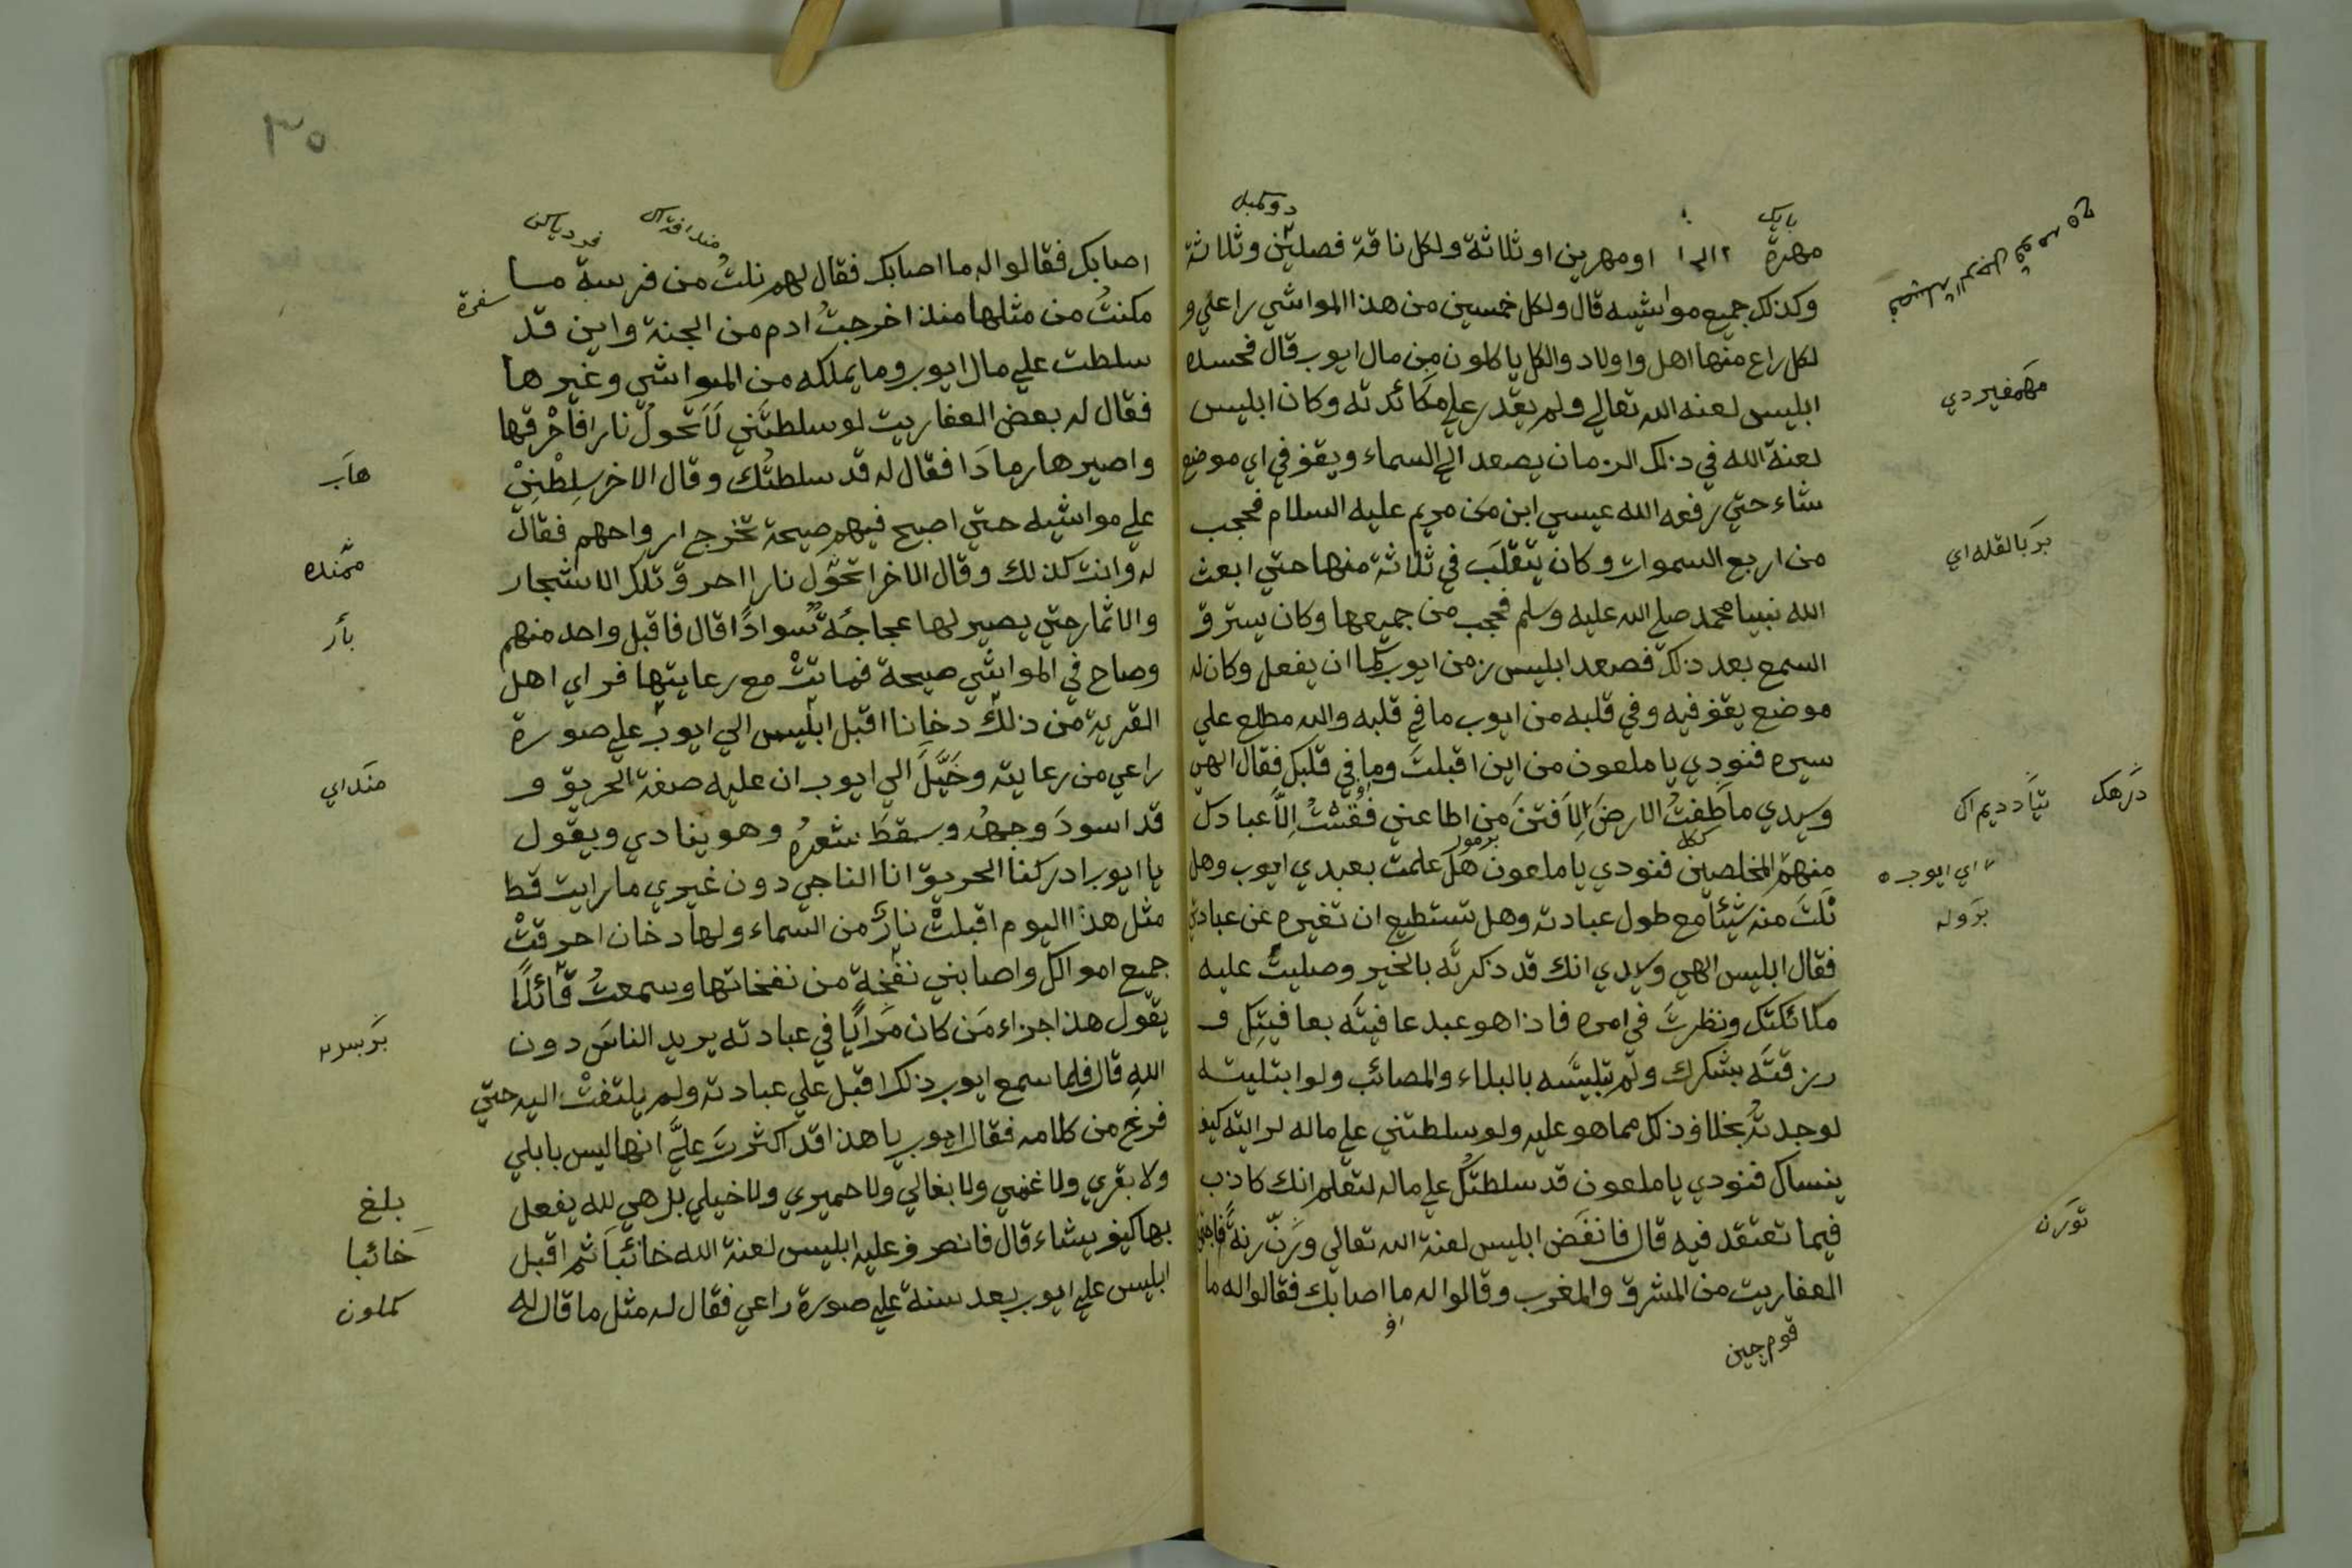 مهرة او مهرين او ثلاثة ولكل ناقة فصلين وثلاثة
وكذلك جميع مواشيه قال ولكل خمسين من هذا المواشي راعي و
لكل راع منها اهل واولاد والكل ياكلون من مال ايوب قال فحسده
ابليس لعنه الله تعالي ولم يقدر علي مكائدته وكان ابليس
لعنة الله في ذلك الزمان يصعد الي السماء ويقف في اي موضع
شاء حتي رفعه الله عيسي ابن مريم عليه السلام فحجب
من اربع السموات وكان يتقلب في ثلاثة منها حتي ابعث
الله نبينا محمد صلي الله عليه وسلم فحجب من جميعها وكان يسترق
السمع بعد ذلك فصعد ابليس زمن ايوب كما ان يفعل وكان له
موضع يقف فيه وفي قلبه من ايوب ما في قلبه والله مطلع علي
سيره فنودي يا ملعون من اين اقبلت وما في قلبك فقال الهي
وسيدي ما طفت الارض الا فتن من اطاعني ففتشت الا عبادك
منهم المخلصين فنودي يا ملعون هل علمت بعبدي ايوب وهل
نلت منه شيئا مع طول عبادته وهل تستطيع ان تغيره عن عبادتي
فقال ابليس الهي وسيدي انك قد ذكرته بالخير وصليت عليه
ملائكتك ونظرت في امره فاذا هو عبد عافيته بعافيتك و
رزقته بشكرك ولم تبليته بالبلاء والمصائب ولو ابتليته
لوجدته بخلاف ذلك مما هو عليه ولو سلطتني علي ماله لرايته كيف
ينساك فنودي يا ملعون قد سلطتك علي ماله لتعلم انك كاذب
فيما تعتقد فيه قال فانقض ابليس لعنة الله تعالي ورن رنة
العفاريت من المشرق والمغرب وقالوا له ما اصابك فقالوا له ما
قوم جين
توڠرن
٣٥
اصابك فقالوا له ما اصابك فقال لهم نلت من فرسة ما
مكنت من مثلها منذ اخرجت ادم من الجنة واين قد
سلطت علي مال ايوب وما يملكه من المواشي وغيرها
فقال له بعض العفاريت لو سلطتني لاتحول نارا فاحرقها
واصيرها رمادا فقال له قد سلطتك وقال الاخر سلطني
علي مواشيه حتي اصيح فيهم صيحة تخرج ارواحهم فقال
له وانت كذلك وقال الاخر اتحول نارا احرق تلك الاشجار
والاثمار حتي يصير لها عجاجة سوادا قال فاقبل واحد منهم
وصاح في المواشي صيحة فماتت مع رعايتها فراي اهل
القرية من ذلك دخانا اقبل ابليس الي ايوب علي صورة
راعي من رعايته وخيل الي ايوب ان عليه صفة الحريق و
قد اسود وجهه وسقط شعره وهو ينادي ويقول
يا ايوب ادركنا الحريق انا الناجي دون غيري ما رايت قط
مثل هذا اليوم اقبلت نار من السماء ولها دخان احرقت
جميع اموالك واصابني نفخة من نفخاتها وسمعت قائلا
يقول هذا جزاء من كان مرايا في عبادته يريد الناس دون
الله قال فلما سمع ايوب ذلك اقبل علي عبادته ولم يلتفت اليه حتي
فرغ من كلامه فقال ايوب يا هذا قد اكثرت علي انها ليس بابلي
ولا بقري ولا غنمي ولا بغالي ولا حميري ولا خيلي بل هي لله يفعل
بها كيف يشاء قال فانصرف عليه ابليس لعنة الله خائبا ثم اقبل
ابليس علي ايوب بعد سنة علي صورة راعي فقال له مثل ما قال له
بلغ
خائبا